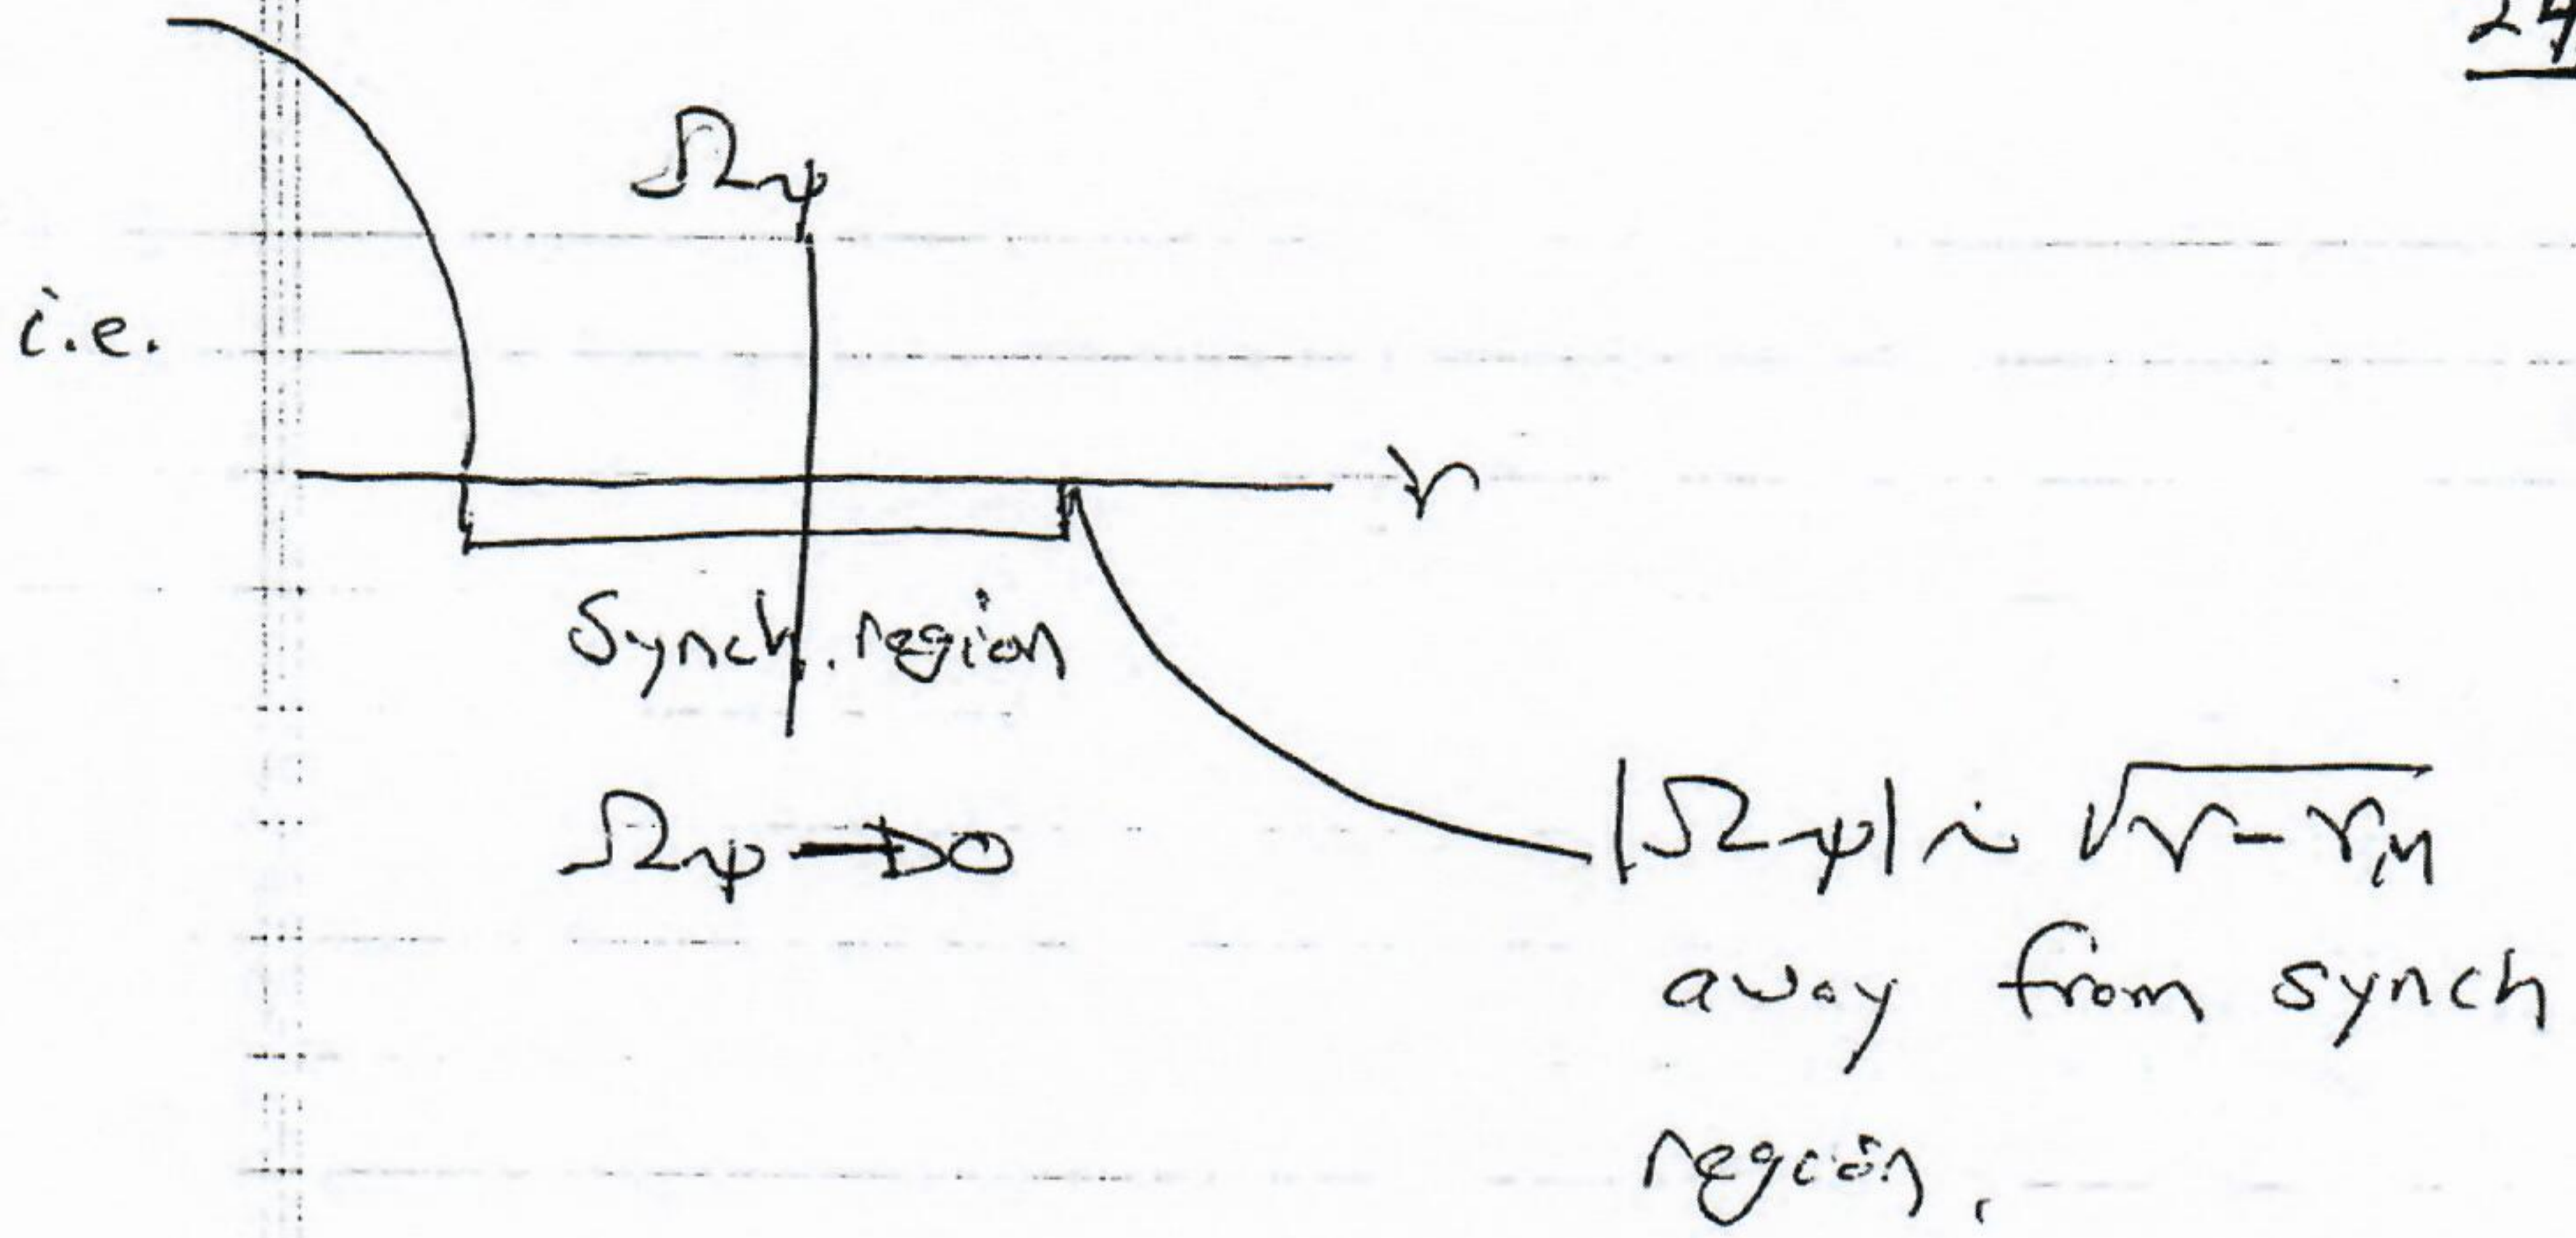 24
Ωψ
i.e.
r
Synch. region
Ωψ → 0
|Ωψ| ~ √r - rM
away from synch
region.